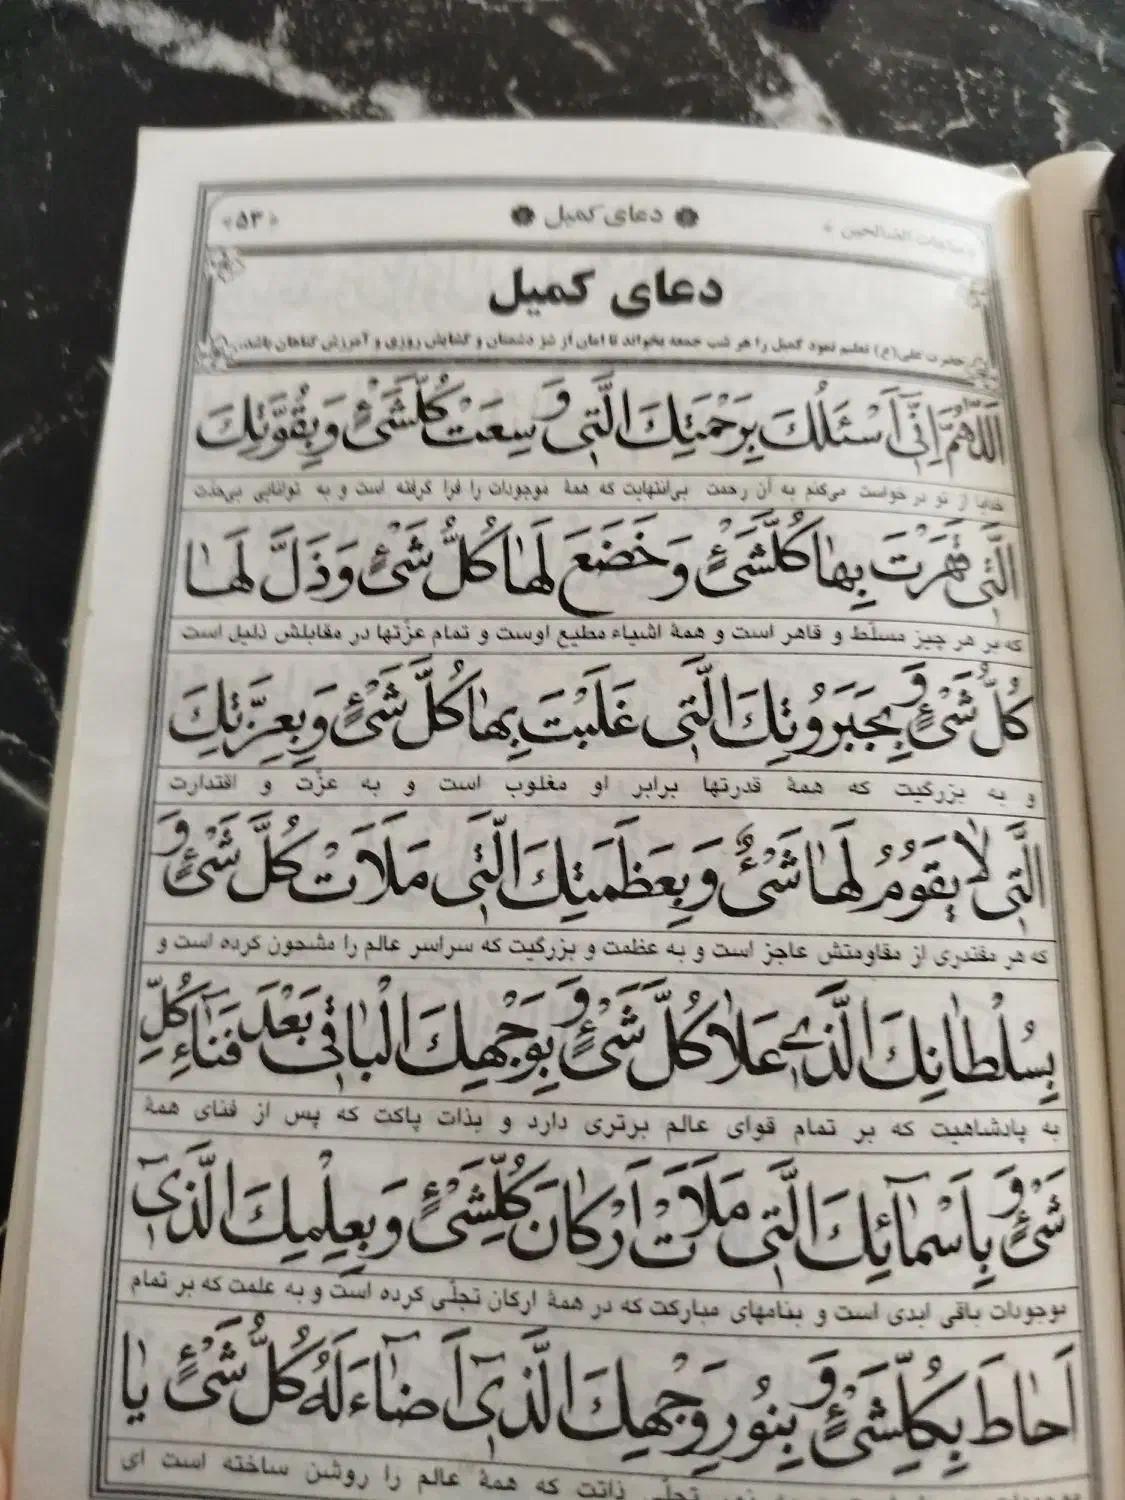 مناجات الصالحین * ❁ دعای کمیل ❁ «۵۳»
دعای کمیل
حضرت علی(ع) تعلیم نمود کمیل را هر شب جمعه بخواند تا امان از شرّ دشمنان و گشایش روزی و آمرزش گناهان باشد.
اَللّٰهُمَّ اِنّیٖ اَسْئَلُكَ بِرَحْمَتِكَ الَّتیٖ وَسِعَتْ كُلَّشَیْءٍ وَبِقُوَّتِكَ
خدایا از تو درخواست می‌کنم به آن رحمت بی‌انتهایت که همهٔ موجودات را فرا گرفته است و به توانایی بی‌حدت
الَّتیٖ قَهَرْتَ بِهٰا كُلَّشَیْءٍ وَخَضَعَ لَهٰا كُلُّ شَیْءٍ وَذَلَّ لَهٰا
که بر هر چیز مسلّط و قاهر است و همهٔ اشیاء مطیع اوست و تمام عزّتها در مقابلش ذلیل است
كُلُّ شَیْءٍ وَبِجَبَرُوتِكَ الَّتیٖ غَلَبْتَ بِهٰا كُلَّ شَیْءٍ وَبِعِزَّتِكَ
و به بزرگیت که همهٔ قدرتها برابر او مغلوب است و به عزّت و اقتدارت
الَّتیٖ لٰا یَقُومُ لَهٰا شَیْءٌ وَبِعَظَمَتِكَ الَّتیٖ مَلَاَتْ كُلَّ شَیْءٍ وَ
که هر مقتدری از مقاومتش عاجز است و به عظمت و بزرگیت که سراسر عالم را مشحون کرده است و
بِسُلْطٰانِكَ الَّذیٖ عَلٰا كُلَّ شَیْءٍ وَبِوَجْهِكَ الْبٰاقیٖ بَعْدَ فَنٰاءِ كُلِّ
به پادشاهیت که بر تمام قوای عالم برتری دارد و بذات پاکت که پس از فنای همهٔ
شَیْءٍ وَبِاَسْمٰائِكَ الَّتیٖ مَلَاَتْ اَرْكٰانَ كُلِّشَیْءٍ وَبِعِلْمِكَ الَّذیٖ
موجودات باقی ابدی است و بنامهای مبارکت که در همهٔ ارکان تجلّی کرده است و به علمت که بر تمام
اَحٰاطَ بِكُلِّشَیْءٍ وَبِنُورِ وَجْهِكَ الَّذیٖ اَضٰاءَ لَهُ كُلُّ شَیْءٍ یٰا
تجلّی ذاتت که همهٔ عالم را روشن ساخته است ای